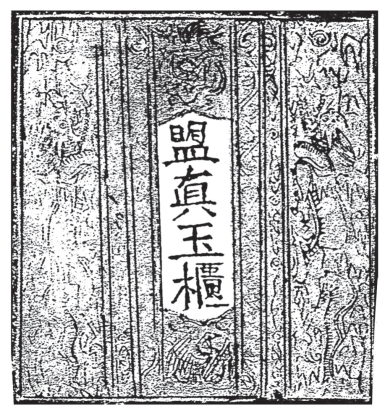 盟真玉櫃